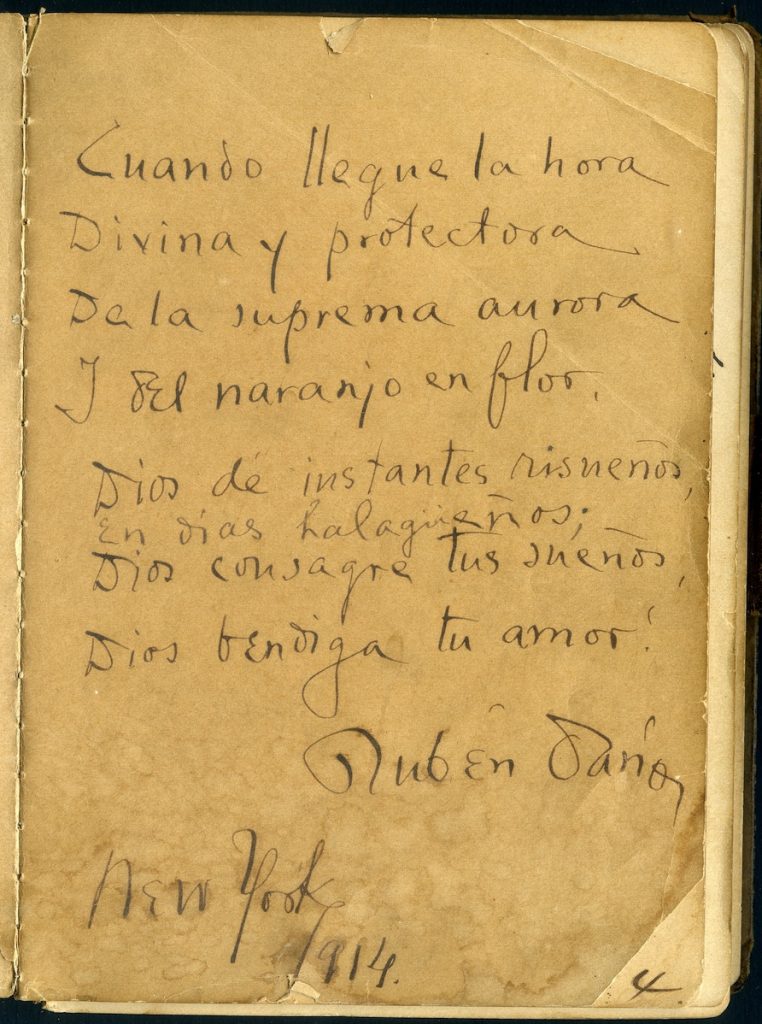 Cuando llegue la hora
Divina y protectora
De la suprema aurora
Y del naranjo en flor,
Dios dé instantes risueños,
En días halagüeños;
Dios consagre tus sueños,
Dios bendiga tu amor!
Rubén Darío
New York
1914.
4